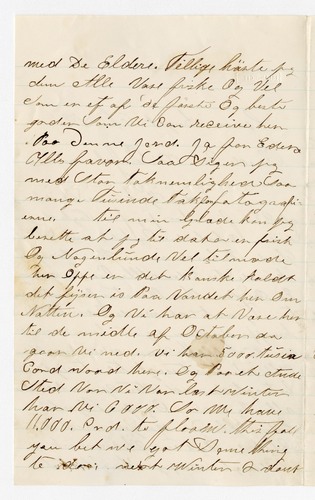 med De Eldere. Tillige håste jeg
dem Alle Vare friske Og Vel
som en et af de første Og beste
goder som Vi Can receive her
Paa Denne Jord. Ja fra Eders
Alles favor. Saa siger jeg
med Stor taknemlighed Saa
mange Tusinde Tak
til min Glæde kan jeg
berette at jeg til dato er frisk
Og Nogenlunde Vel til mode
her Oppe en det kanske koldt
det fryser is Paa Vandet her Om
Natten. Og Vi har at Vare her
til de midle af October da
gaar Vi ned. Vi har 5000 tusin
Cord wood her. Og paa et andet
Sted Vor Vi Var last Winter
har Vi 6000. So We have
11,000. Crd. to float this fall
you bet we got Something
to doo. next Winter I dont